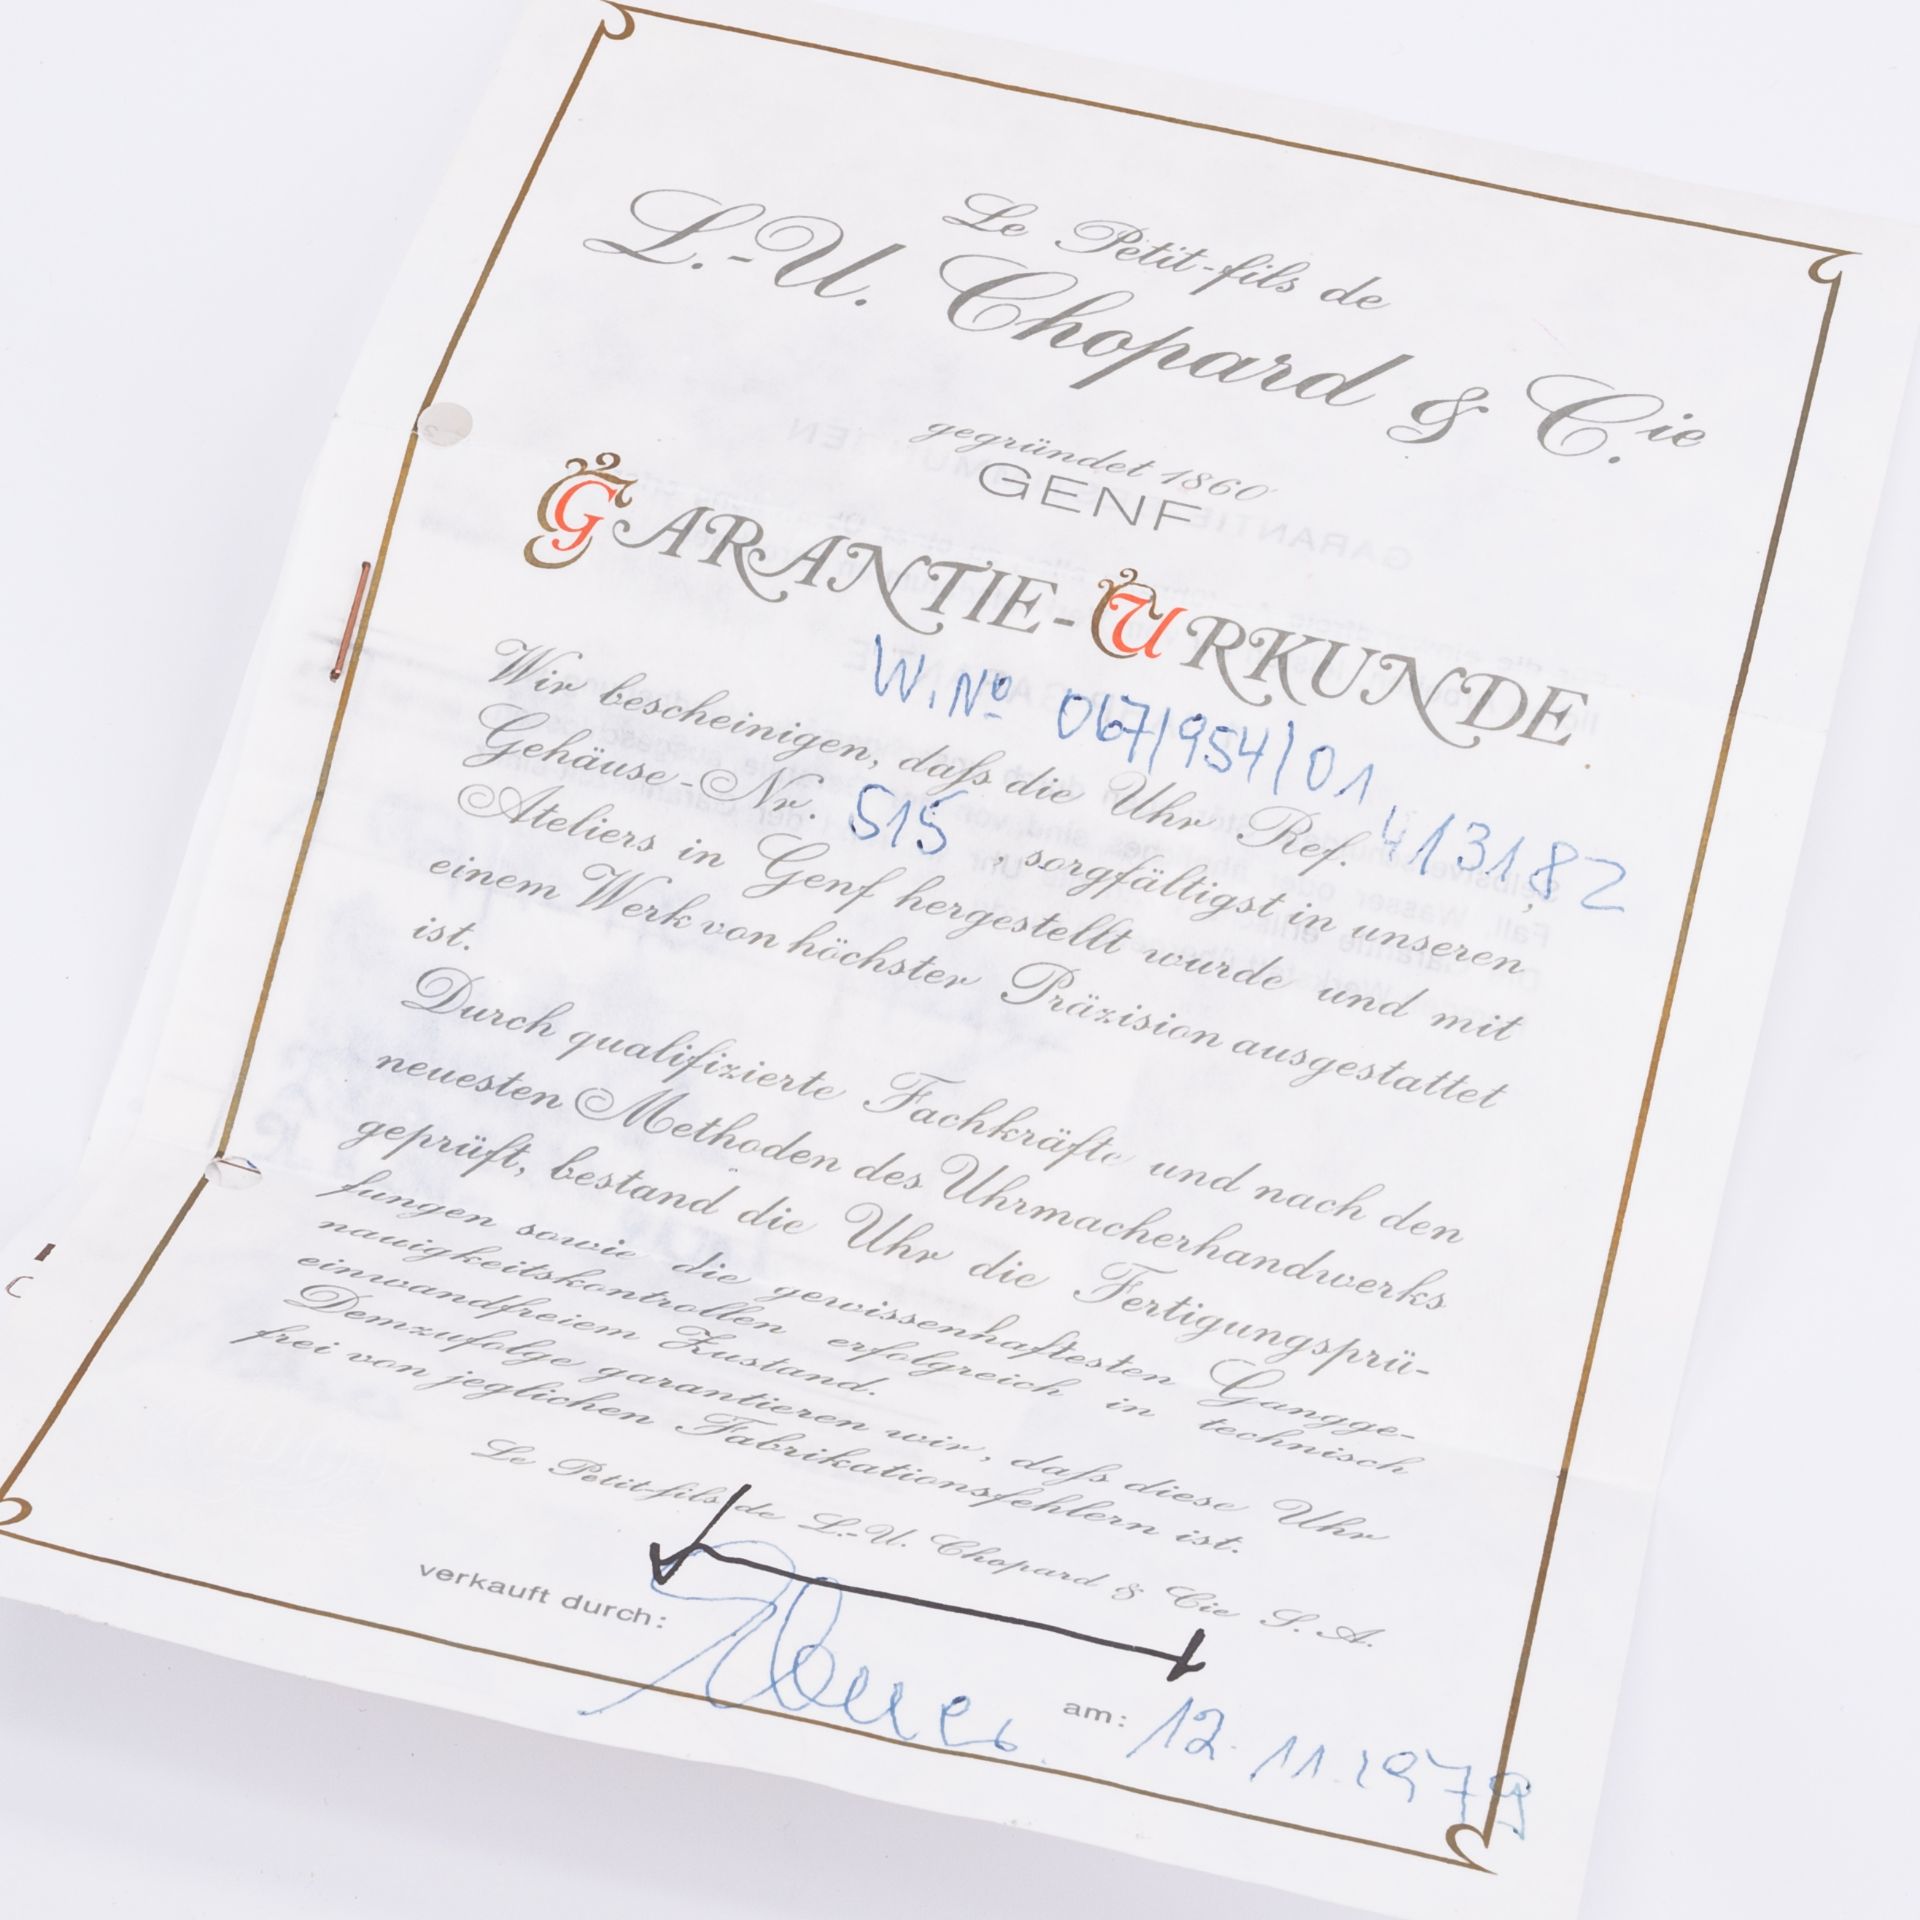 Le Petit-fils de
L.-U. Chopard & C.ie
gegründet 1860
GENF
GARANTIE-URKUNDE
W. Nº 067/954/01
Wir bescheinigen, daß die Uhr Ref. 413182,
Gehäuse-Nr. 515, sorgfältigst in unseren
Ateliers in Genf hergestellt wurde und mit
einem Werk von höchster Präzision ausgestattet
ist.
Durch qualifizierte Fachkräfte und nach den
neuesten Methoden des Uhrmacherhandwerks
geprüft, bestand die Uhr die Fertigungsprü-
fungen sowie die gewissenhaftesten Gangge-
nauigkeitskontrollen erfolgreich in technisch
einwandfreiem Zustand.
Demzufolge garantieren wir, daß diese Uhr
frei von jeglichen Fabrikationsfehlern ist.
Le Petit-fils de L.-U. Chopard & Cie S. A.
verkauft durch:
am: 12.11.1979